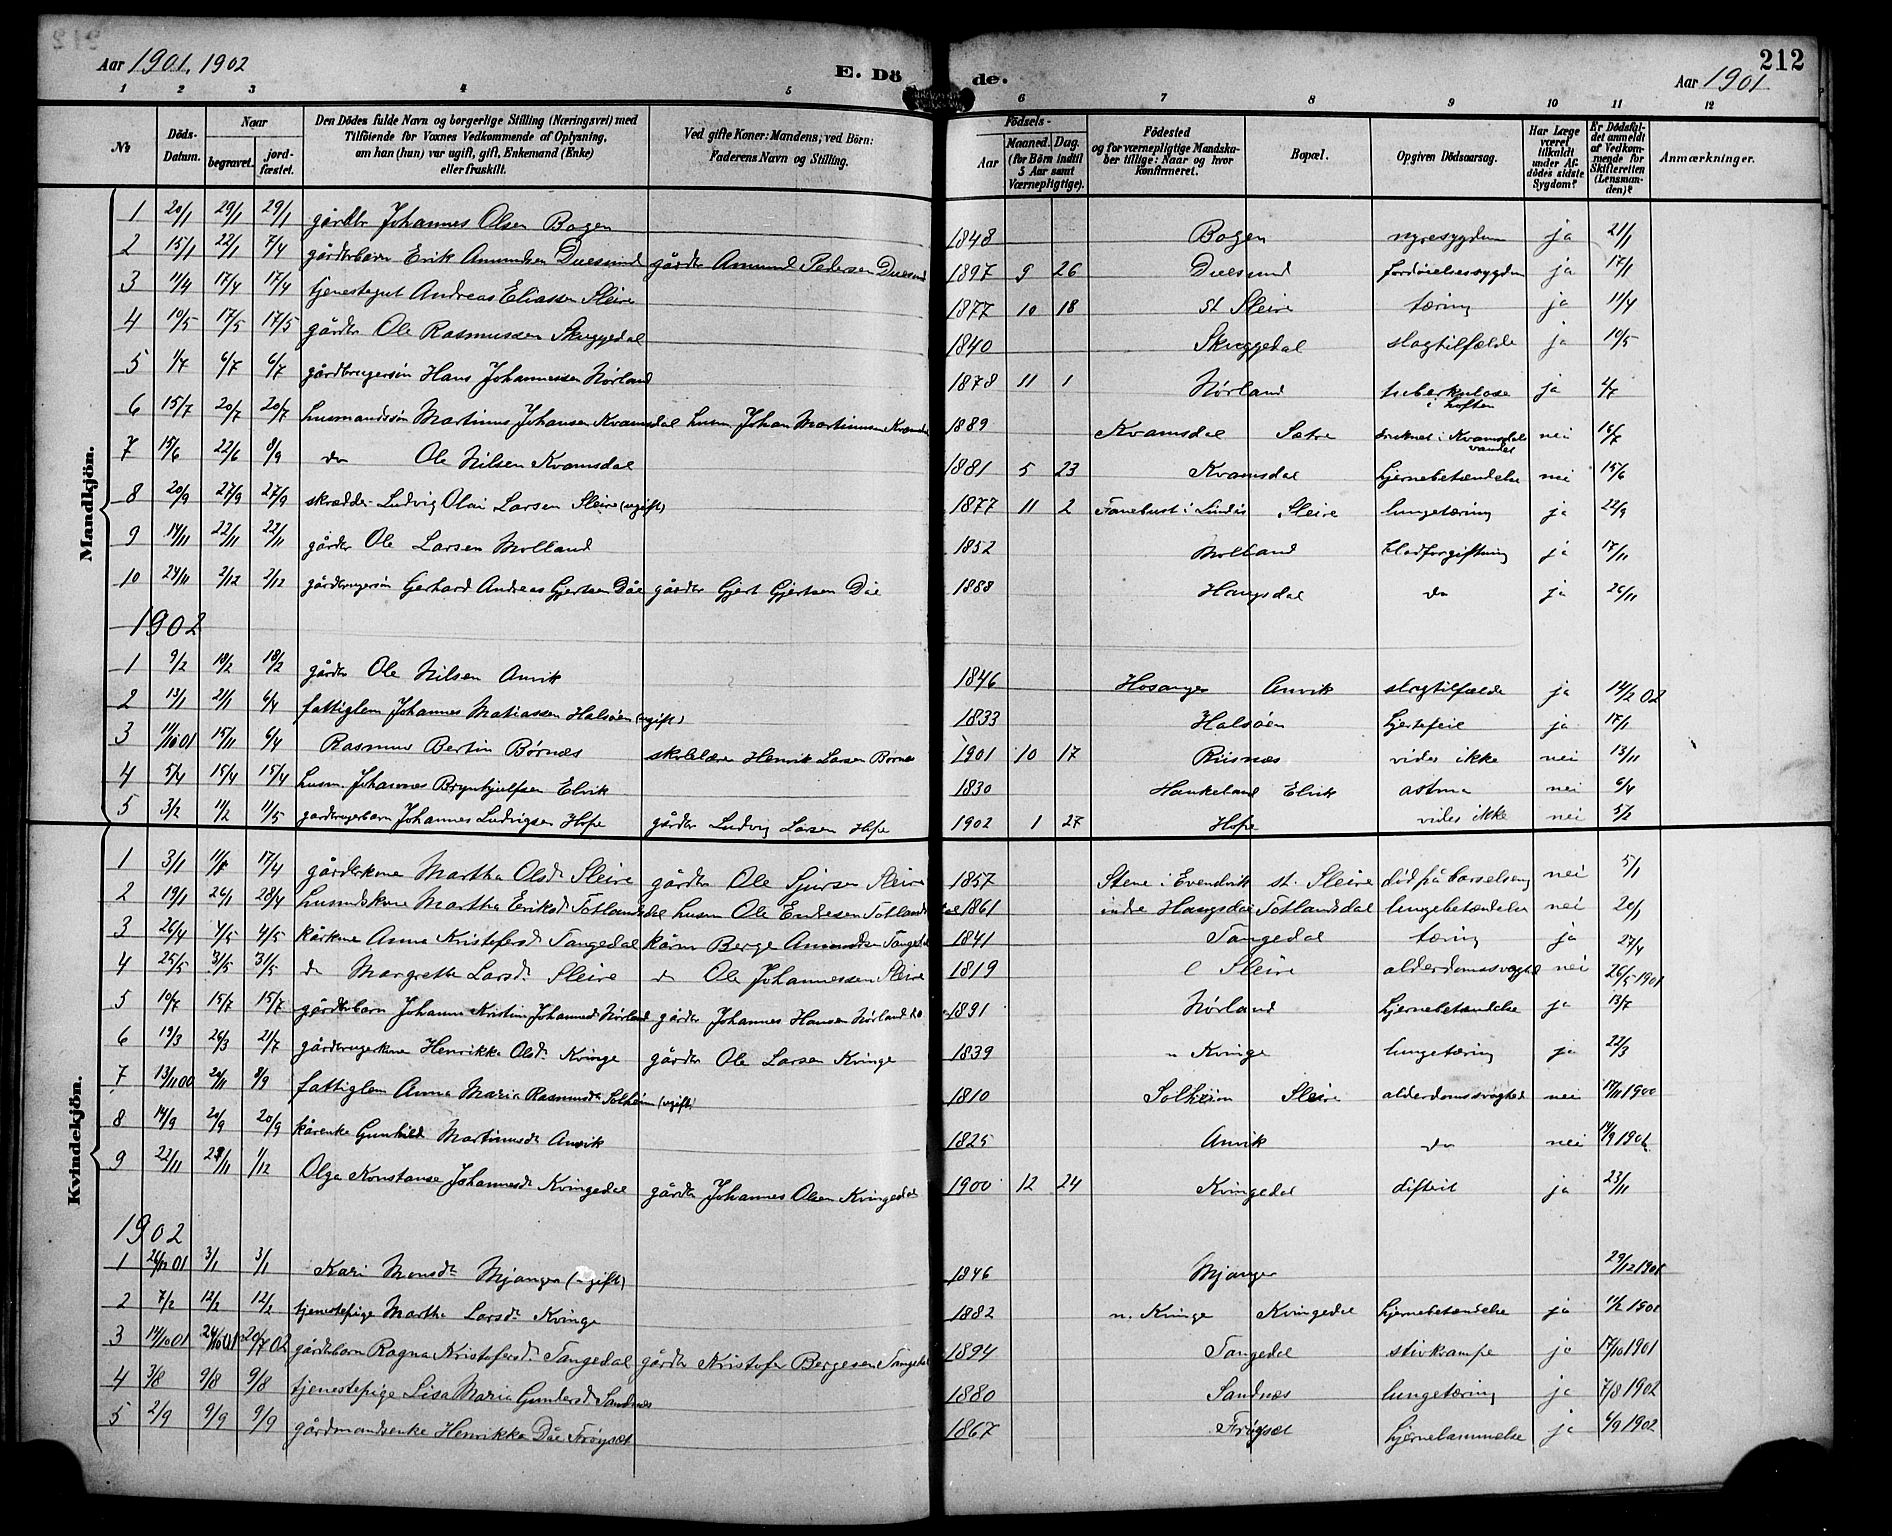 Aar 1901, 1902
E. Döde.
Aar 1901
212
1 2 3 4 5 6 7 8 9 10 11 12
No
Döds-Datum.
Naar begravet. jordfæstet.
Den Dödes fulde Navn og borgerlige Stilling (Næringsvei) med Tilföiende for Voxnes Vedkommende af Oplysning, om han (hun) var ugift, gift, Enkemand (Enke) eller fraskilt.
Ved gifte Koner: Mandens; ved Börn: Faderens Navn og Stilling.
Födsels- Aar Maaned. Dag. (for Börn indtil 5 Aar samt Værnepligtige).
Födested og for værnepligtige Mandskaber tillige: Naar og hvor konfirmeret.
Bopæl.
Opgiven Dödsaarsag.
Har Læge været tilkaldt under Afdödes sidste Sygdom?
Er Dödsfaldet anmeldt af Vedkommende for Skifteretten (Lensmanden)?
Anmærkninger.
Mandkjön.
1 20/1 29/1 29/1 gårdbr Johannes Olsen Bogen 1848 Bogen nyresygdom ja 21/1
2 15/1 22/1 7/4 gårdbrbarn Erik Amundsen Duesund gårdbr Amund Pedersen Duesund 1897 9 26 Duesund fordøielsessygdom ja 17/1
3 11/4 17/4 17/4 tjenestegut Andreas Eliassen Sleire 1877 10 18 St Sleire tæring ja 11/4
4 10/5 17/5 17/5 gårdbr Ole Rasmussen Skuggedal 1840 Skuggedal slagtilfælde ja 10/5
5 1/7 6/7 6/7 gårdbrugersøn Hans Johannessen Nørland 1878 11 1 Nørland tuberkulose i hoften ja 2/7
6 15/7 20/7 20/7 husmandssøn Martinus Johansen Kvamsdal husm Johan Martinussen Kvamsdal 1889 Kvamsdal Sætre druknet i Kvamsdalsvandet nei 16/7
7 15/6 22/6 8/9 do Ole Nilsen Kvamsdal 1881 5 23 Kvamsdal hjernebetændelse nei 15/6
8 20/9 27/9 27/9 skrædder Ludvig Olai Larsen Sleire (ugift) 1877 11 2 Fanebust i Lindås Sleire lungetæring ja 22/9
9 14/11 22/11 22/11 gårdbr Ole Larsen Molland 1852 Molland blodforgiftning ja 17/11
10 24/11 2/12 2/12 gårdbrugersøn Gerhard Andreas Gjertsen Dåe gårdbr Gjert Gjertsen Dåe 1888 Haugsdal do ja 26/11
1902
1 9/2 18/2 18/2 gårdbr Ole Nilsen Anvik 1846 Hosanger Anvik slagtilfælde ja 14/2 02
2 13/1 21/1 6/4 fattiglem Johannes Matiassen Halsøen (ugift) 1833 Halsøen hjertefeil ja 17/1
3 11/10 01 15/11 6/4 Rasmus Bertin Børnæs skolelærer Henrik Larsen Børnes 1901 10 17 Risnæs vides ikke nei 13/11
4 5/4 15/4 15/4 husm. Johannes Brynhjulfsen Elvik 1830 Haukeland Elvik astma nei 6/4
5 3/2 11/2 11/5 gårdbrugerbarn Johannes Ludvigsen Hope gårdbr Ludvig Larsen Hope 1902 1 27 Hope vides ikke nei 5/2
Kvindekjön.
1 3/1 11/1 17/4 gårdbrkone Martha Olsdr Sleire gårdbr Ole Sjursen Sleire 1857 Stene i Evendvik st. Sleire død på barselseng nei 5/1
2 19/1 26/1 28/4 husmdskone Martha Eriksdr Totlandsdal husm Ole Endresen Totlandsdal 1861 indre Haugsdal Totlandsdal lungebetændelse nei 20/1
3 26/4 4/5 4/5 kårkone Anna Kristofersdr Tangedal kårm Berge Amundsen Tangedal 1841 Tangedal tæring ja 27/4
4 25/5 31/5 31/5 do Margrethe Larsdr Sleire do Ole Johannessen Sleire 1819 l Sleire alderdomssvaghed nei 26/5 1901
5 10/7 15/7 15/7 gårdbrbarn Johanna Kristine Johannesdr Nørland gårdbr Johannes Hansen Nørland 1891 Nørland hjernebetændelse ja 13/7
6 19/3 26/3 21/7 gårdbrugerkone Henrikka Olsdr Kvinge gårdbr Ole Larsen Kvinge 1839 n Kvinge lungetæring ja 22/3
7 13/11 00 20/11 8/9 fattiglem Anna Maria Rasmusdr Solheim (ugift) 1810 Solheim Sleire alderdomssvaghed nei 17/11 1900
8 14/9 20/9 20/9 kårenke Gunhild Martinusdr Anvik 1825 Anvik do nei 14/9 1901
9 22/11 28/11 1/12 Olga Konstanse Johannesdr Kvingedal gårdbr Johannes Olsen Kvingedal 1900 12 24 Kvingedal difterit ja 23/11
1902
1 26/12 01 3/1 3/1 Kari Monsdr Mjanger (ugift) 1846 Mjanger 29/12 1901
2 7/2 12/2 12/2 tjenestepige Martha Larsdr Kvinge 1882 n. Kvinge Kvingedal hjernebetændelse ja 11/2 1902
3 14/10 01 24/10 01 20/7 02 gårdbrbarn Ragna Kristofersdr Tangedal gårdbr Kristofer Bergesen Tangedal 1894 Tangedal stivkrampe ja 17/10 1901
4 3/8 9/8 9/8 tjenestepige Lisa Maria Gundersdr Sandnæs 1880 Sandnæs lungetæring ja 7/8 1902
5 2/9 9/9 9/9 gårdmandsenke Henrikka Dåe Frøyset 1867 Frøyset hjernelammelse ja 6/9 1902